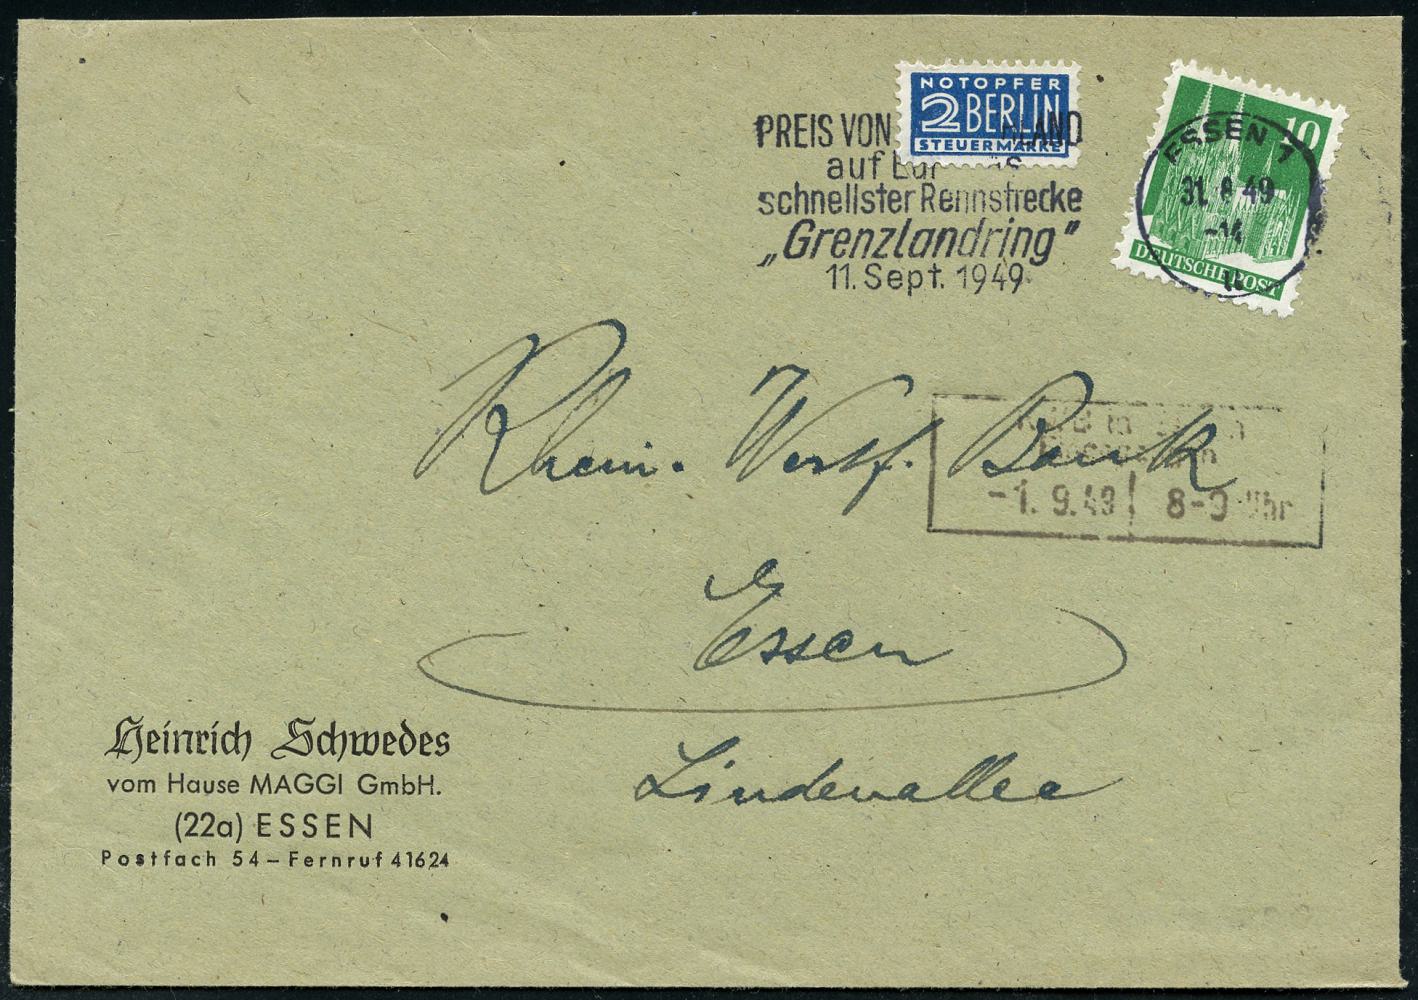 NOTOPFER
2 BERLIN
STEUERMARKE
10
DEUTSCHE POST
ESSEN 1
31. 8 49
-14
PREIS VON LAND
auf
schnellster Rennstrecke
„Grenzlandring"
11. Sept. 1949
Rhein. Westf. Bank
-1. 9. 49 8-9 Uhr
Essen
Lindenallee
Heinrich Schwedes
vom Hause MAGGI GmbH.
(22a) ESSEN
Postfach 54 – Fernruf 41624